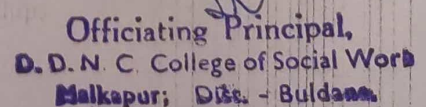 Officiating Principal,
D. D. N. C. College of Social Work
Malkapur; Dist. - Buldana.